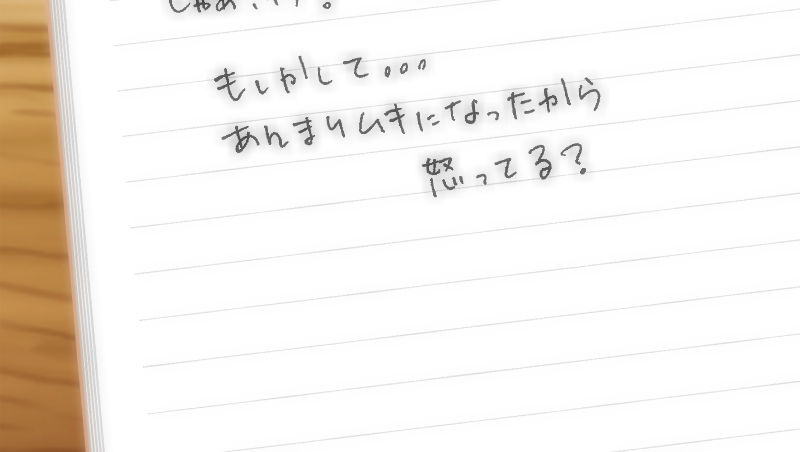 もしかして...
あんまりムキになったから
怒ってる?